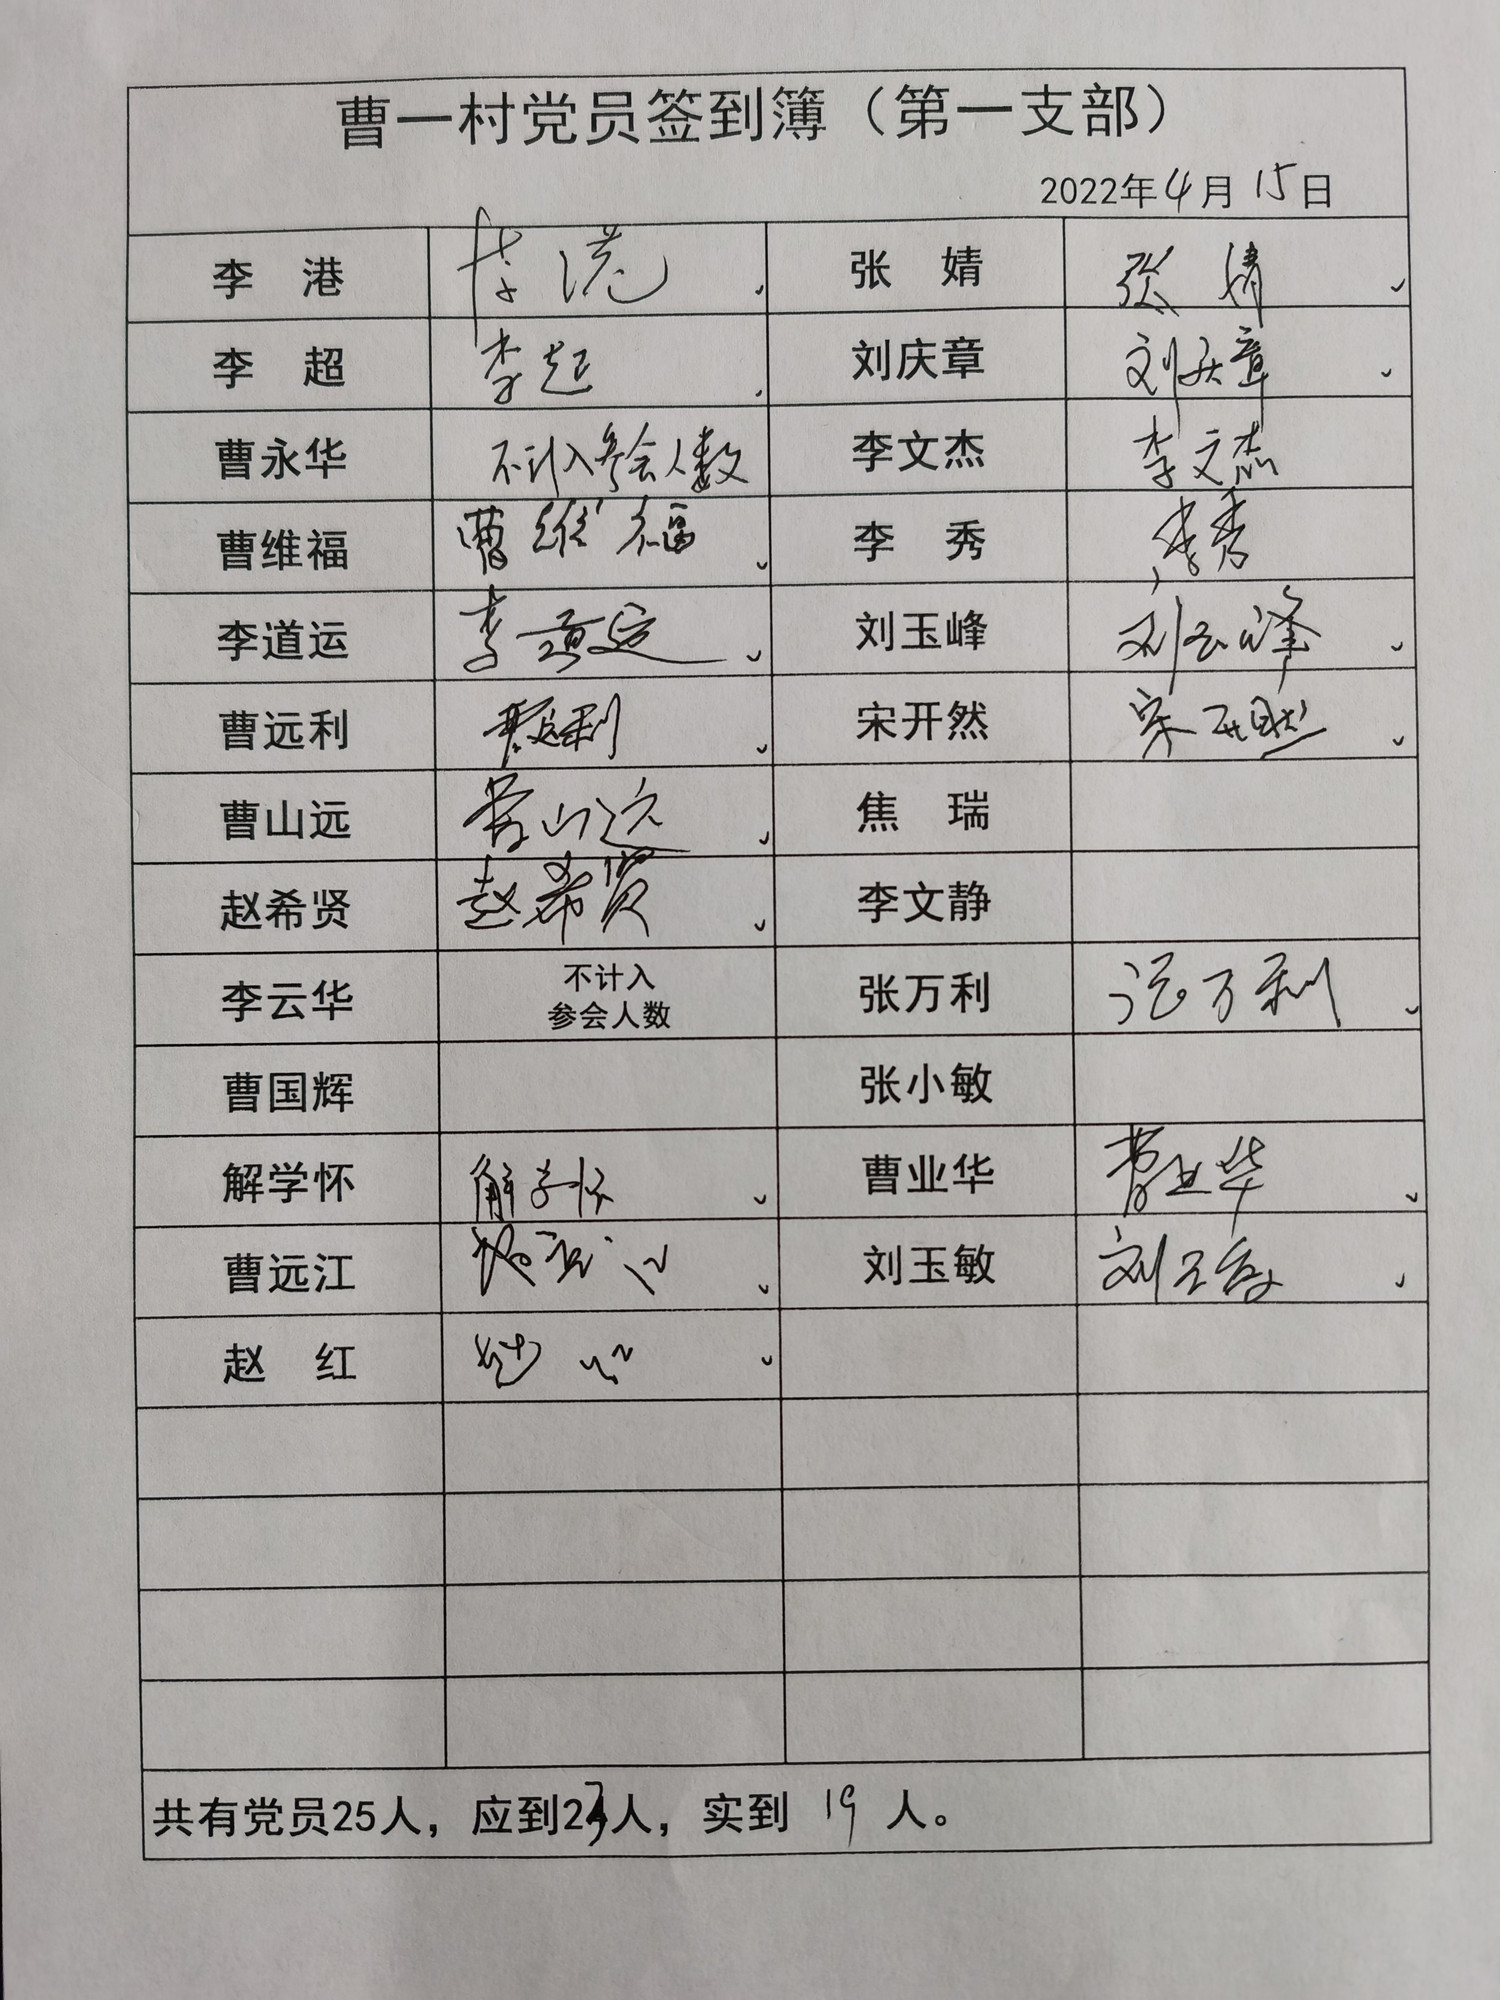 曹一村党员签到簿（第一支部）
2022年4月15日
李 港 李港 张 婧 张婧
李 超 李超 刘庆章 刘庆章
曹永华 不计入参会人数 李文杰 李文杰
曹维福 曹维福 李 秀 李秀
李道运 李道运 刘玉峰 刘玉峰
曹远利 曹远利 宋开然 宋开然
曹山远 曹山远 焦 瑞
赵希贤 赵希贤 李文静
李云华 不计入 张万利 张万利
参会人数
曹国辉 张小敏
解学怀 解学怀 曹业华 曹业华
曹远江 刘玉敏 刘玉敏
赵 红 赵红
共有党员25人，应到23人，实到 19 人。